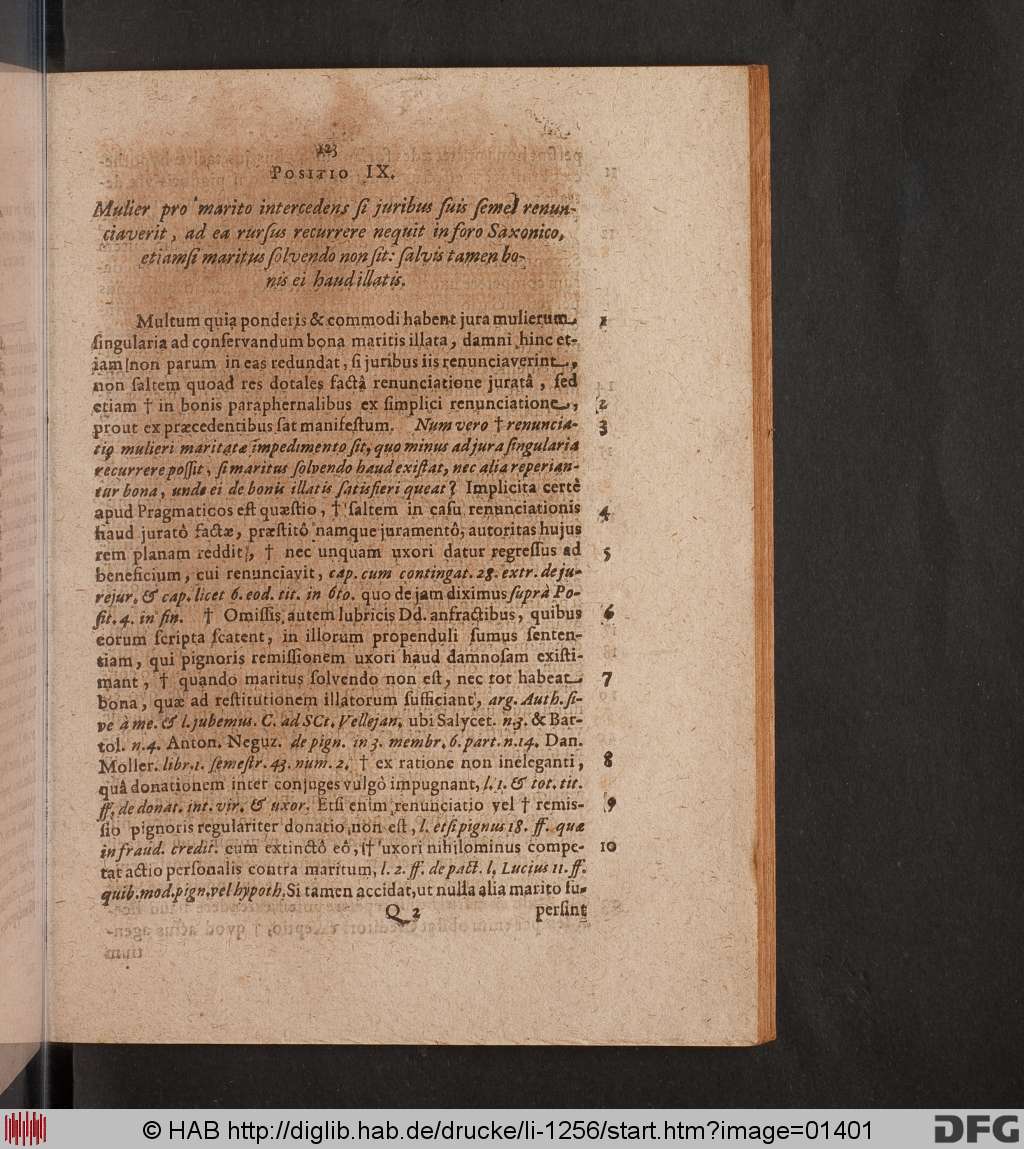 123
POSITIO IX.
Mulier pro marito intercedens ſi juribus ſuis ſemel renun-
ciaverit, ad ea rurſus recurrere nequit in foro Saxonico,
etiamſi maritus ſolvendo non ſit: ſalvis tamen bo-
nis ei haud illatis.
Multum quia ponderis & commodi habent jura mulierum 1
ſingularia ad conſervandum bona maritis illata, damni hinc et-
iam non parum in eas redundat, ſi juribus iis renunciaverint,
non ſaltem quoad res dotales factâ renunciatione juratâ, ſed
etiam † in bonis paraphernalibus ex ſimplici renunciatione, 2
prout ex præcedentibus ſat manifeſtum. Num vero † renuncia- 3
tio mulieri maritatæ impedimento ſit, quo minus ad jura ſingularia
recurrere poſſit, ſi maritus ſolvendo haud exiſtat, nec alia reperian-
tur bona, unde ei de bonis illatis ſatisfieri queat? Implicita certè
apud Pragmaticos eſt quæſtio, † ſaltem in caſu renunciationis 4
haud juratô factæ, præſtitô namque juramentô, autoritas hujus
rem planam reddit, † nec unquam uxori datur regreſſus ad 5
beneficium, cui renunciavit, cap. cum contingat. 28. extr. de ju-
rejur. & cap. licet 6. eod. tit. in 6to. quo de jam diximus ſuprà Po-
ſit. 4. in fin. † Omiſſis autem lubricis Dd. anfractibus, quibus 6
eorum ſcripta ſcatent, in illorum propenduli ſumus ſenten-
tiam, qui pignoris remiſſionem uxori haud damnoſam exiſti-
mant, † quando maritus ſolvendo non eſt, nec tot habeat 7
bona, quæ ad reſtitutionem illatorum ſufficiant, arg. Auth. ſi-
ve à me. & l. jubemus. C. ad SCt. Vellejan. ubi Salycet. n. 3. & Bar-
tol. n. 4. Anton. Neguz. de pign. in 3. membr. 6. part. n. 14. Dan.
Moller. libr. 1. ſemeſtr. 43. num. 2. † ex ratione non ineleganti, 8
quâ donationem inter conjuges vulgò impugnant, l. 1. & tot. tit.
ff. de donat. int. vir. & uxor. Etſi enim renunciatio vel † remiſ- 9
ſio pignoris regulariter donatio non eſt, l. etſi pignus 18. ff. quæ
in fraud. credit. cum extinctô eô, † uxori nihilominus compe- 10
tat actio perſonalis contra maritum, l. 2. ff. de pact. l. Lucius 11. ff.
quib. mod. pign. vel hypoth. Si tamen accidat, ut nulla alia marito ſu-
Q 2 perſint
© HAB http://diglib.hab.de/drucke/li-1256/start.htm?image=01401
DFG